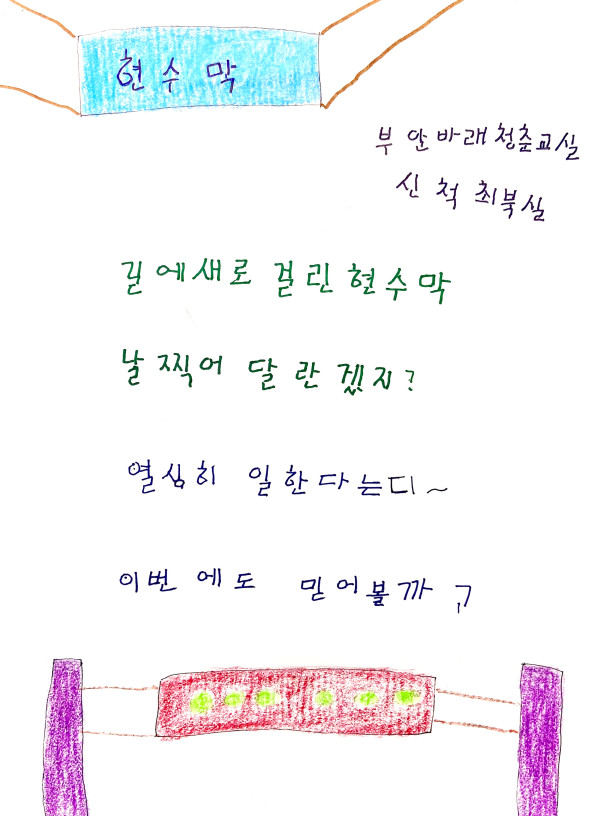 현수막
부안바래청춘교실
신척 최북실
길에새로 걸린현수막
날찍어 달란겠지?
열심히 일한다는디~
이번에도 믿어볼까